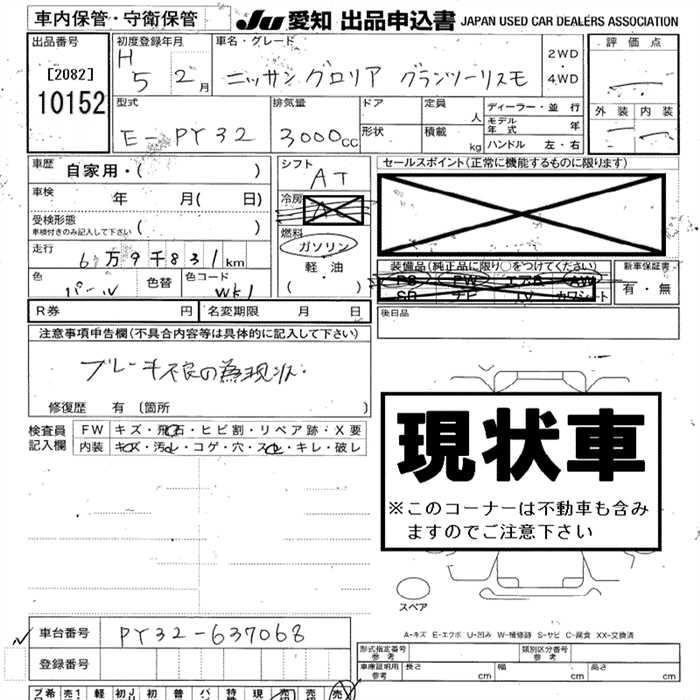 車内保管・守衛保管
JU 愛知 出品申込書 JAPAN USED CAR DEALERS ASSOCIATION
出品番号
[2082]
10152
初度登録年月
H 5 2月
車名・グレード
ニッサン グロリア グランツーリスモ
2WD
・
4WD
評価点
外装 内装
型式
E-PY32
排気量
3000cc
ドア
形状
定員 人
積載 kg
ディーラー・並行
モデル年式 年
ハンドル 左・右
車歴 自家用・( )
車検 年 月( 日)
受検形態
車検付きのみ記入して下さい ( )
走行
6万9千831km
色
パール
色替
色コード
WK1
シフト
AT
冷房
燃料
ガソリン
軽・油
( )
セールスポイント(正常に機能するものに限ります)
装備品(純正品に限り○をつけてください)
PS PW エアB AW
SR ナビ TV カワシート
新車保証書
有・無
R券 円 名変期限 月 日
後日品
注意事項申告欄(不具合内容等は具体的に記入して下さい)
ブレーキ不良の為現状.
修復歴 有 (箇所 )
検査員記入欄
FW キズ・飛石・ヒビ割・リペア跡・X要
内装 キズ・汚レ・コゲ・穴・スレ・キレ・破レ
現状車
※このコーナーは不動車も含みますのでご注意下さい
スペア
A-キズ E-エクボ U-凹み W-補修跡 S-サビ C-腐食 XX-交換済
車台番号 PY32-637068
登録番号
形式指定番号 参考
類別区分番号 参考
車庫証明用 参考 長さ cm 幅 cm 高さ cm